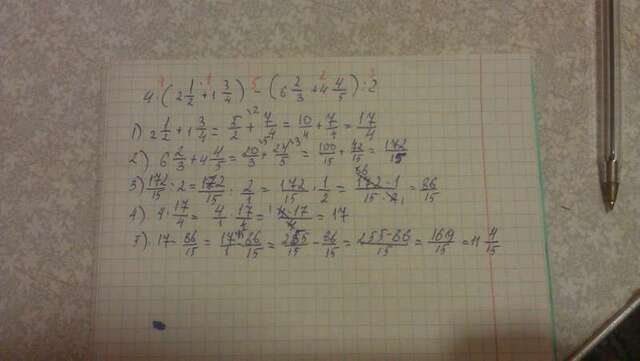 4 · (2 1/2 + 1 3/4) - (6 2/3 + 4 4/5) : 2
1) 2 1/2 + 1 3/4 = 5/2 + 7/4 = 10/4 + 7/4 = 17/4
2) 6 2/3 + 4 4/5 = 20/3 + 24/5 = 100/15 + 72/15 = 172/15
3) 172/15 : 2 = 172/15 : 2/1 = 172/15 · 1/2 = 172·1/15·2 = 86/15
4) 4 · 17/4 = 4/1 · 17/4 = 4·17/4 = 17
5) 17 - 86/15 = 17/1 - 86/15 = 255/15 - 86/15 = 255-86/15 = 169/15 = 11 4/15